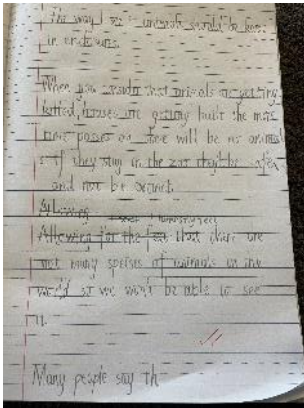 The way I see animals should be kept
in enclosures.
When you consider that animals are getting
killed, houses are getting built the more
time passes on there will be no animal
s if they stay in the zoo they'll be safer
and not be extinct.
Allowing
Allowing for the fact that there are
not many species of animals in the
world so we won't be able to see
it.
Many people say th